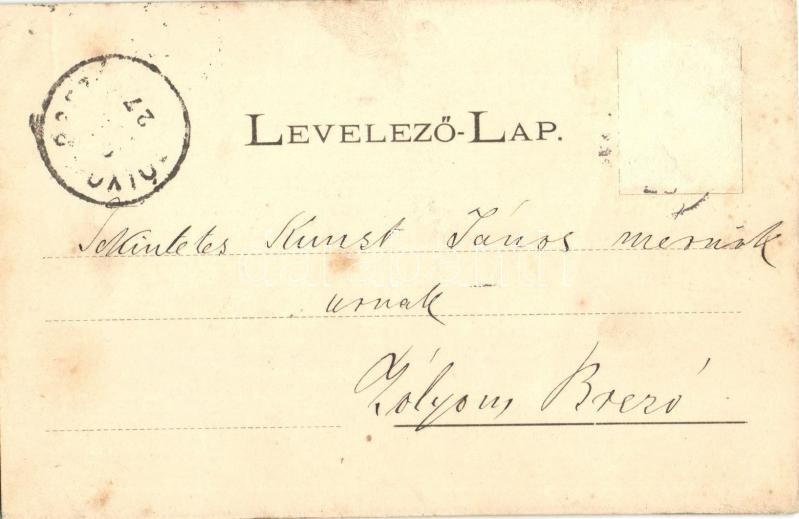 LEVELEZŐ-LAP.
27
Tekintetes Kunst János mérnök
urnak
Zólyom, Brezó